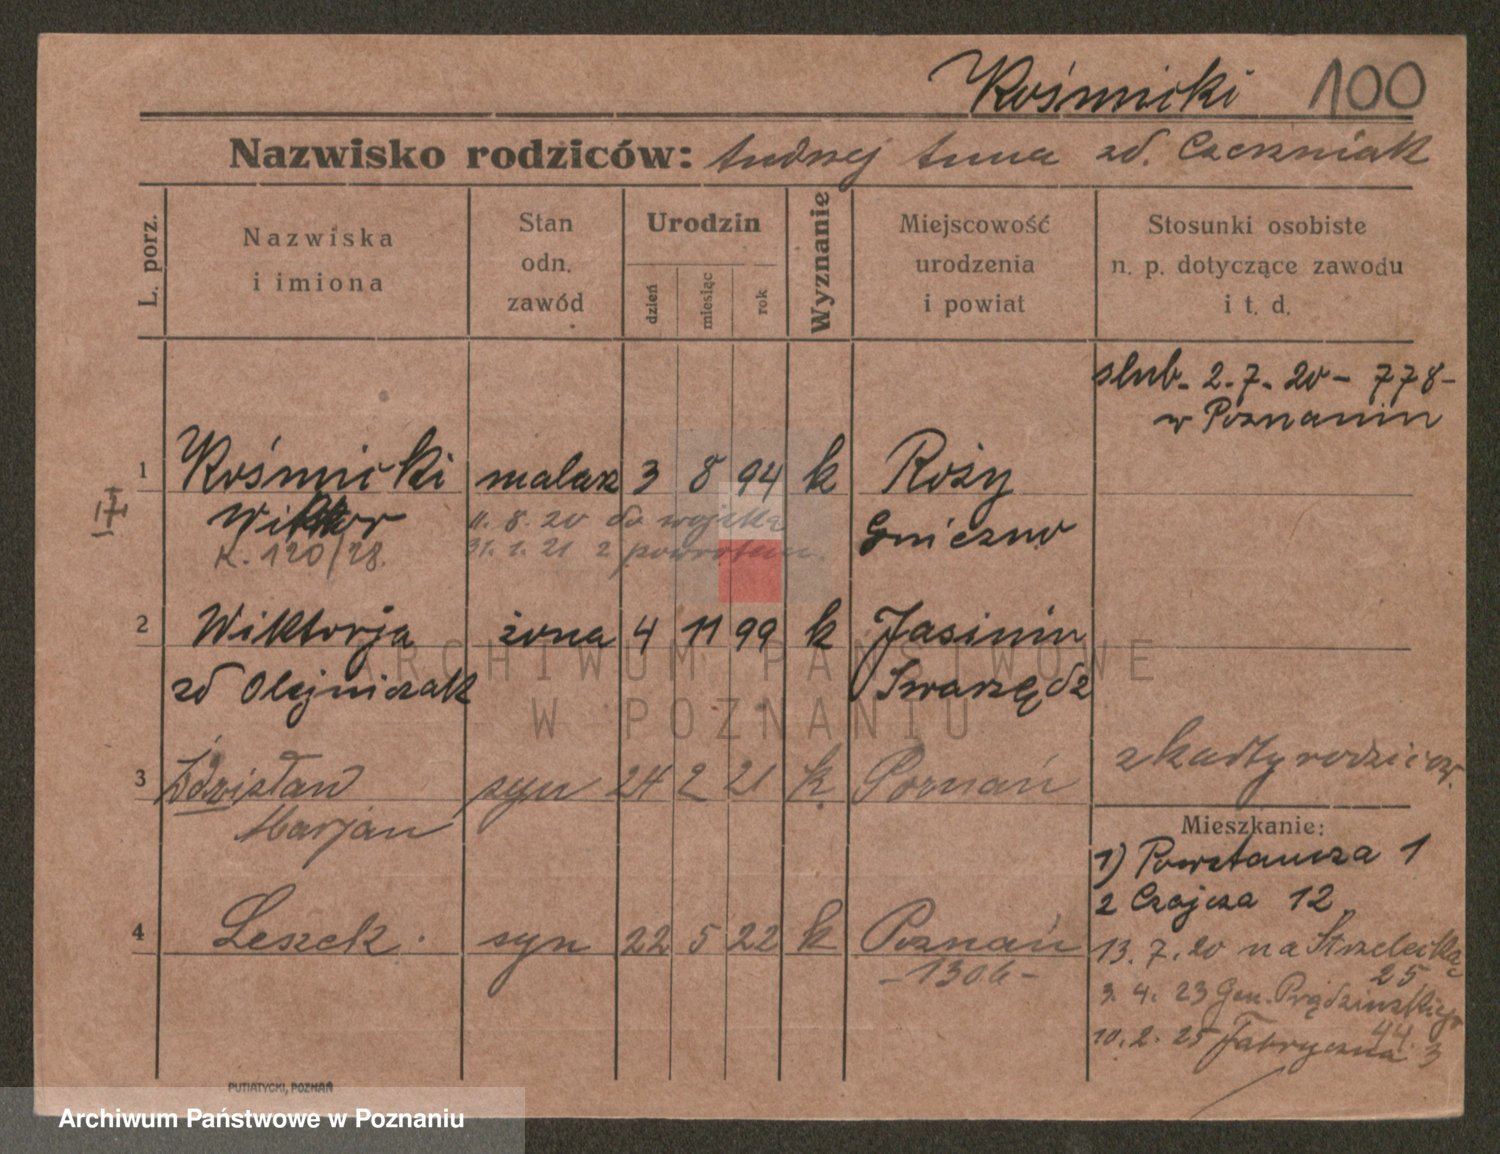 Kośmicki 100
Nazwisko rodziców: Andrzej Anna zd. Czerniak
L. porz.
Nazwiska
i imiona
Stan
odn.
zawód
Urodzin
dzień
miesiąc
rok
Wyznanie
Miejscowość
urodzenia
i powiat
Stosunki osobiste
n. p. dotyczące zawodu
i t. d.
slub. 2.7.20 - 778 -
w Poznaniu
1 Kośmicki malarz 3 8 94 k Roży
Wiktor 11. 8. 20 do wojska Gniezno
K. 120/28. 31. 1. 21 z powrotem.
2 Wiktorja żona 4 11 99 k Jasinin
zd Olejniczak Swarzędz
3 Zdzisław syn 24 2 21 k. Poznań
Marjan
z karty rodziców.
Mieszkanie:
1) Powstańcza 1
2 Czajcza 12
4 Leszek. syn 22 5 22 k Poznań
- 1306 -
13. 7. 20 na Strzelecką
25
3. 4. 23 Gen. Prądzińskiego
44
10. 2. 25 Fabryczna 3
PUTIATYCKI, POZNAŃ
ARCHIWUM PAŃSTWOWE
W POZNANIU
Archiwum Państwowe w Poznaniu